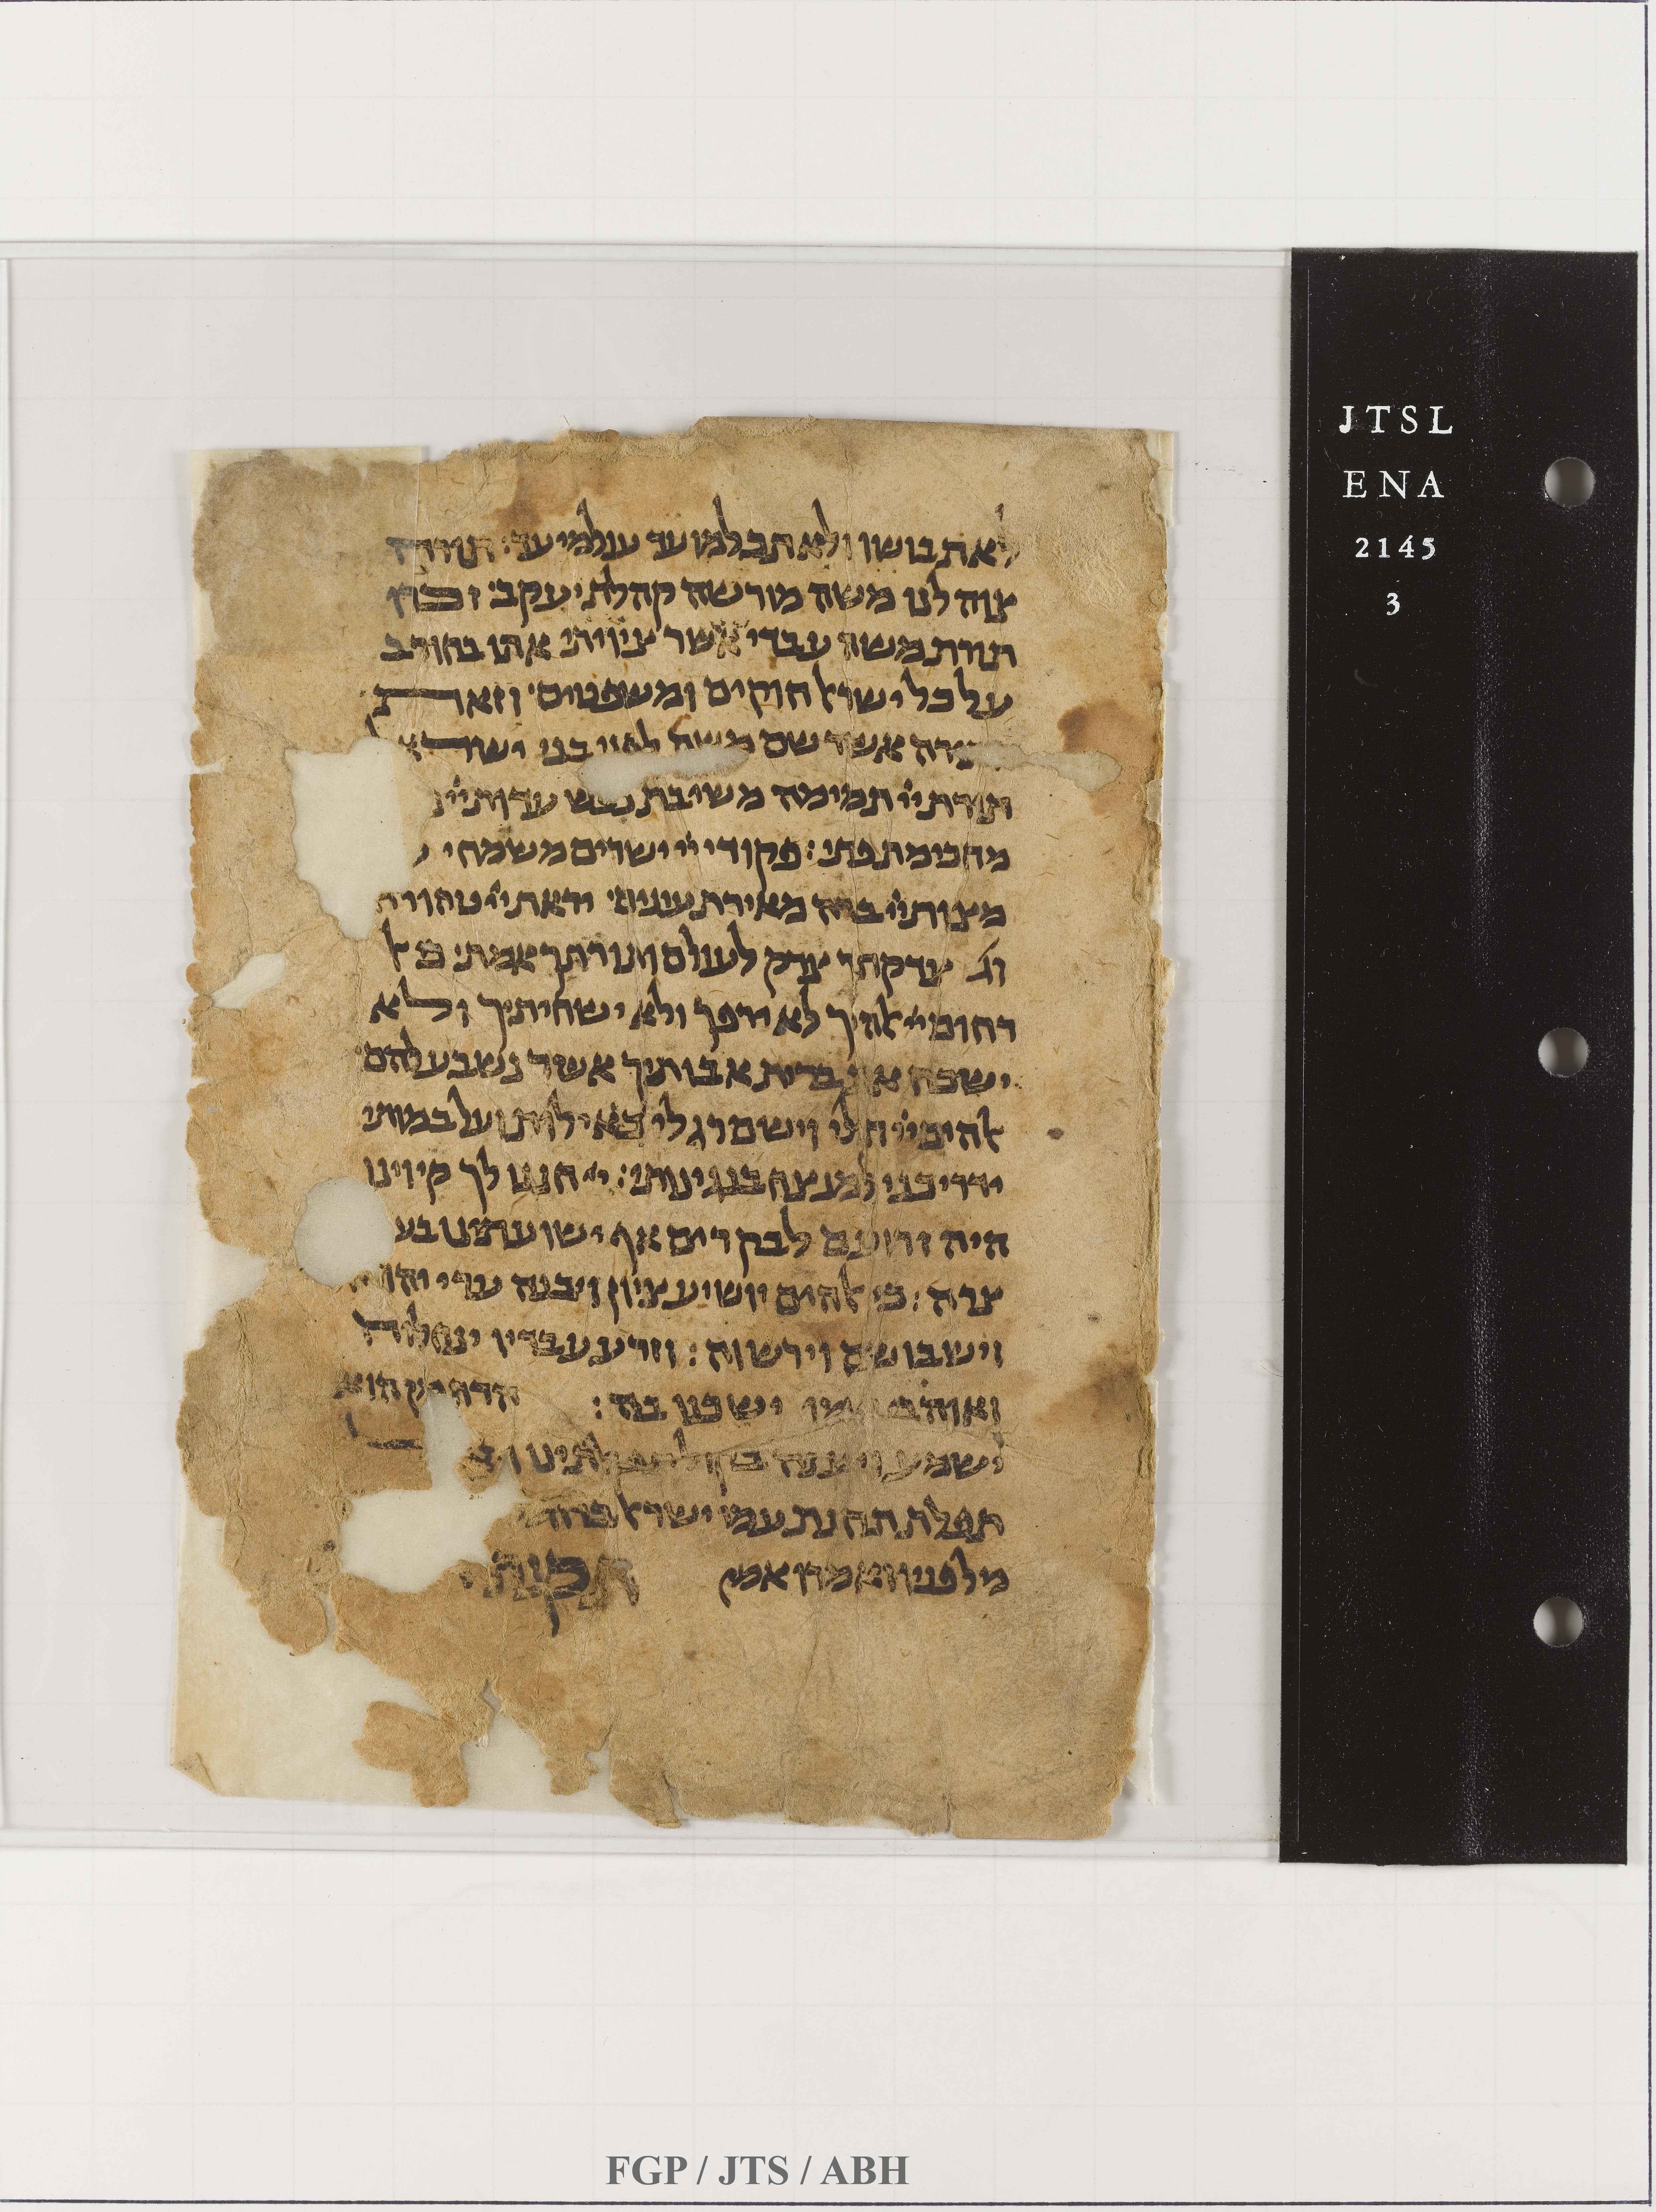 לא תבושו ולא תכלמו עד עולמי עד: תורה
צוה לנו משה מורשה קהלת יעקב: זכרו
תורת משה עבדי אשר ציויתי אתו בחורב
על כל ישראל חוקים ומשפטים: וזאת
אשר שם משה לפני בני ישראל
תורת יי תמימה משיבת נפש עדות יי
מחכימת פתי: פקודי יי ישרים משמחי
מצות יי ברה מאירת עינים: יראת יי טהורה
וג צדקתך צדק לעולם ותורתך אמת: כי אל
רחום יי אלהיך לא ירפך ולא ישחיתך ולא
ישכח את ברית אבותיך אשר נשבע להם
אלהים יי חילי וישם רגלי כאילות ועל במותי
ידריכני למנצח בנגינותי: יי חננו לך קיוינו
היה זרועם לבקרים אף ישועתינו בעת
צרה: כי אלהים יושיע ציון ויבנה ערי יהודה
וישבו שם וירשוה: וזרע עבדיו ינחלוה
ואוהבי שמו ישכנו בה: הרחמן הוא
ישמע ויענה בקול
תפלת תחנת עמו ישראל ברחמים
מלפניו ואמרו אמן
JTSL
ENA
2145
3
FGP / JTS / ABH